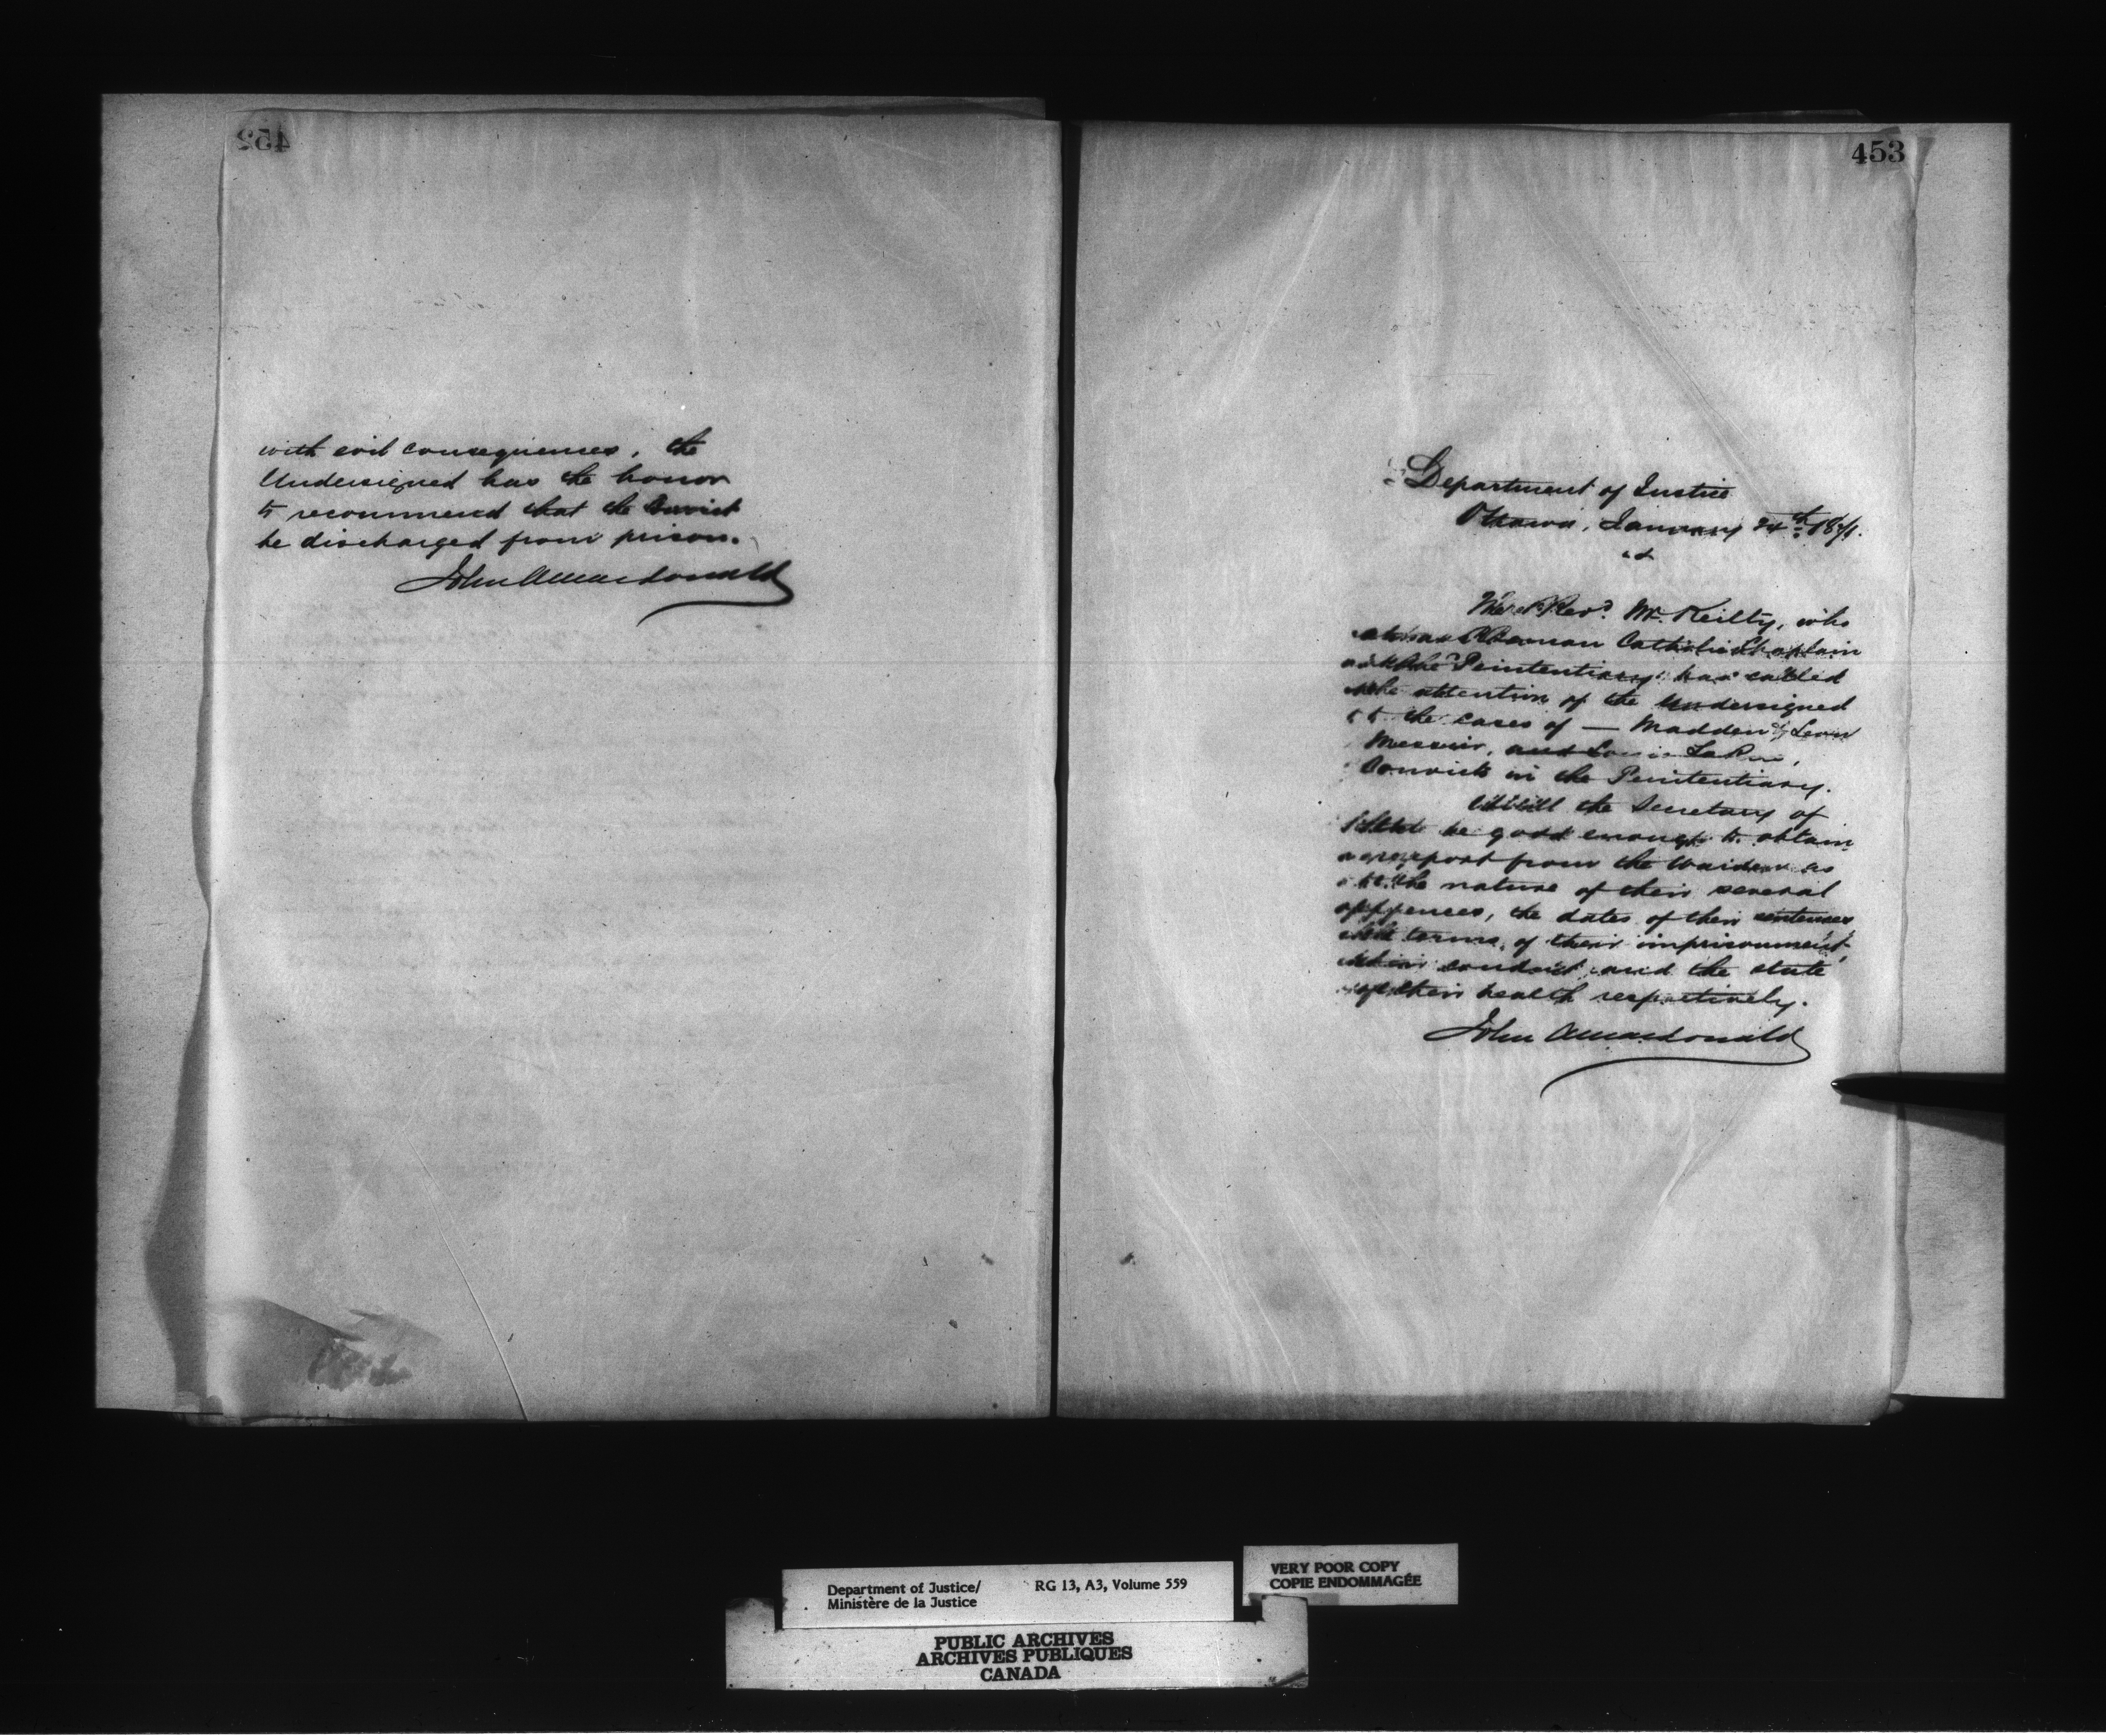 452
with evil consequences, the
Undersigned has the honor
to recommend that the Convict
be discharged from prison.
John A Macdonald
453
Department of Justice
Ottawa, January 24th 1871.
The Revd. Mr. Reilly, who
Roman Catholic Chaplain
the Penitentiary has called
the attention of the Undersigned
to the cases of — Madden, Leon
Messier, and Louis
Convicts in the Penitentiary.
Will the Secretary of
State be good enough to obtain
a report from the Warden as
to the nature of their several
offences, the dates of their sentences
terms of their imprisonment,
their conduct and the state
of their health respectively.
John A Macdonald
Department of Justice/
Ministère de la Justice
RG 13, A3, Volume 559
VERY POOR COPY
COPIE ENDOMMAGÉE
PUBLIC ARCHIVES
ARCHIVES PUBLIQUES
CANADA